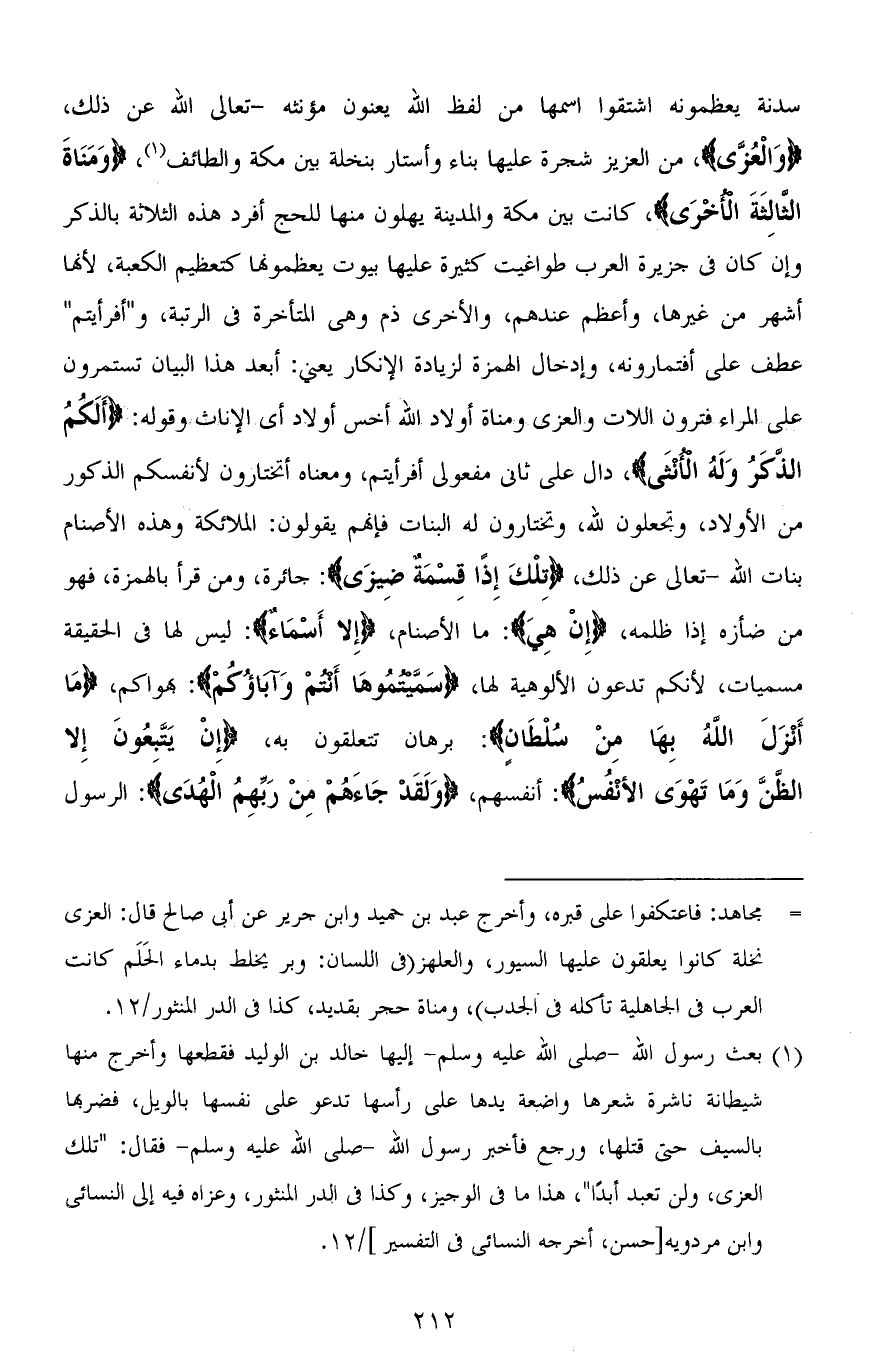 سدنة يعظمونه اشتقوا اسمها من لفظ الله يعنون مؤنثه –تعالى الله عن ذلك،
﴿وَالْعُزَّى﴾، من العزيز شجرة عليها بناء وأستار بنخلة بين مكة والطائف(١)، ﴿وَمَنَاةَ
الثَّالِثَةَ الْأُخْرَى﴾، كانت بين مكة والمدينة يهلون منها للحج أفرد هذه الثلاثة بالذكر
وإن كان فى جزيرة العرب طواغيت كثيرة عليها بيوت يعظمونها كتعظيم الكعبة، لأنها
أشهر من غيرها، وأعظم عندهم، والأخرى ذم وهى المتأخرة فى الرتبة، و"أفرأيتم"
عطف على أفتمارونه، وإدخال الهمزة لزيادة الإنكار يعني: أبعد هذا البيان تستمرون
على المراء فترون اللات والعزى ومناة أولاد الله أخس أولاد أى الإناث وقوله: ﴿أَلَكُمُ
الذَّكَرُ وَلَهُ الْأُنْثَى﴾، دال على ثانى مفعولى أفرأيتم، ومعناه أتختارون لأنفسكم الذكور
من الأولاد، وتجعلون لله، وتختارون له البنات فإنهم يقولون: الملائكة وهذه الأصنام
بنات الله –تعالى عن ذلك، ﴿تِلْكَ إِذًا قِسْمَةٌ ضِيزَى﴾: جائرة، ومن قرأ بالهمزة، فهو
من ضأزه إذا ظلمه، ﴿إِنْ هِيَ﴾: ما الأصنام، ﴿إِلا أَسْمَاءٌ﴾: ليس لها فى الحقيقة
مسميات، لأنكم تدعون الألوهية لها، ﴿سَمَّيْتُمُوهَا أَنْتُمْ وَآبَاؤُكُمْ﴾: بهواكم، ﴿مَا
أَنْزَلَ اللَّهُ بِهَا مِنْ سُلْطَانٍ﴾: برهان تتعلقون به، ﴿إِنْ يَتَّبِعُونَ إِلا
الظَّنَّ وَمَا تَهْوَى الأنْفُسُ﴾: أنفسهم، ﴿وَلَقَدْ جَاءَهُمْ مِنْ رَبِّهِمُ الْهُدَى﴾: الرسول
= مجاهد: فاعتكفوا على قبره، وأخرج عبد بن حميد وابن جرير عن أبى صالح قال: العزى
نخلة كانوا يعلقون عليها السيور، والعلهز(فى اللسان: وبر يخلط بدماء الحَلَم كانت
العرب فى الجاهلية تأكله فى الجدب)، ومناة حجر بقديد، كذا فى الدر المنثور/١٢.
(١) بعث رسول الله –صلى الله عليه وسلم– إليها خالد بن الوليد فقطعها وأخرج منها
شيطانة ناشرة شعرها واضعة يدها على رأسها تدعو على نفسها بالويل، فضربها
بالسيف حتى قتلها، ورجع فأخبر رسول الله –صلى الله عليه وسلم– فقال: "تلك
العزى، ولن تعبد أبدًا"، هذا ما فى الوجيز، وكذا فى الدر المنثور، وعزاه فيه إلى النسائى
وابن مردويه[حسن، أخرجه النسائى فى التفسير ]/١٢.
٢١٢